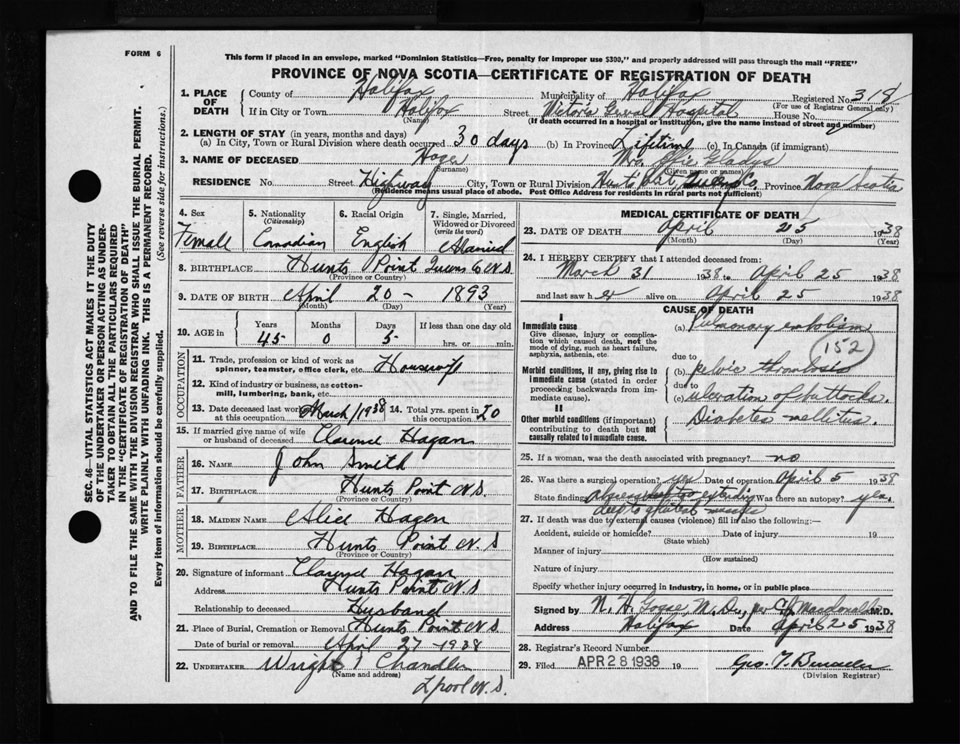 FORM 6
This form if placed in an envelope, marked "Dominion Statistics—Free, penalty for improper use $300," and properly addressed will pass through the mail "FREE"
PROVINCE OF NOVA SCOTIA—CERTIFICATE OF REGISTRATION OF DEATH
SEC. 46—VITAL STATISTICS ACT MAKES IT THE DUTY
OF THE UNDERTAKER OR PERSON ACTING AS UNDER-
TAKER TO OBTAIN ALL THE PARTICULARS REQUIRED
IN THE "CERTIFICATE OF REGISTRATION OF DEATH"
AND TO FILE THE SAME WITH THE DIVISION REGISTRAR WHO SHALL ISSUE THE BURIAL PERMIT.
WRITE PLAINLY WITH UNFADING INK. THIS IS A PERMANENT RECORD.
Every item of information should be carefully supplied. (See reverse side for instructions.)
1. PLACE OF DEATH
County of Halifax Municipality of Halifax Registered No. 318
(For use of Registrar General only)
If in City or Town Halifax Street Victoria General Hospital House No.
(Name) (If death occurred in a hospital or institution, give the name instead of street and number)
2. LENGTH OF STAY (in years, months and days)
(a) In City, Town or Rural Division where death occurred 30 days (b) In Province Lifetime (c) In Canada (if immigrant)
3. NAME OF DECEASED Hagen Mrs. Gladys
(Surname) (Given name or names)
RESIDENCE No. Street Highway City, Town or Rural Division Hunts Pt., Queens Co. Province Nova Scotia
(Residence means usual place of abode. Post Office Address for residents in rural parts not sufficient)
4. Sex Female
5. Nationality (Citizenship) Canadian
6. Racial Origin English
7. Single, Married, Widowed or Divorced (write the word) Married
8. BIRTHPLACE Hunts Point Queens Co N.S.
(Province or Country)
9. DATE OF BIRTH April 20 - 1893
(Month) (Day) (Year)
10. AGE in Years Months Days If less than one day
45- 0 5- hrs. or min.
OCCUPATION
11. Trade, profession or kind of work as spinner, teamster, office clerk, etc. Housewife
12. Kind of industry or business, as cotton-mill, lumbering, bank, etc.
13. Date deceased last worked at this occupation March/1938 14. Total yrs. spent in this occupation 20
15. If married give name of wife or husband of deceased Clarence Hagan
FATHER
16. NAME John Smith
17. BIRTHPLACE Hunts Point N.S.
(Province or Country)
MOTHER
18. MAIDEN NAME Alice Hagen
19. BIRTHPLACE Hunts Point N.S
(Province or Country)
20. Signature of informant Clarence Hagan
Address Hunts Point N.S
Relationship to deceased Husband
21. Place of Burial, Cremation or Removal Hunts Point N.S.
Date of burial or removal April 27 - 1938
22. UNDERTAKER Wright & Chandler
(Name and address)
L'pool N.S.
MEDICAL CERTIFICATE OF DEATH
23. DATE OF DEATH April 25 1938
(Month) (Day) (Year)
24. I HEREBY CERTIFY that I attended deceased from:
March 31 1938 to April 25 1938
and last saw her alive on April 25 1938
CAUSE OF DEATH
I
Immediate cause
Give disease, injury or complication which caused death, not the mode of dying, such as heart failure, asphyxia, asthenia, etc.
(a) Pulmonary embolism
152
due to
Morbid conditions, if any, giving rise to immediate cause (stated in order proceeding backwards from immediate cause).
(b) pelvic thrombosis
due to
(c) ulceration of buttocks.
II
Other morbid conditions (if important) contributing to death but not causally related to immediate cause.
Diabetes mellitus.
25. If a woman, was the death associated with pregnancy? no
26. Was there a surgical operation? yes Date of operation April 5 1938
State findings abscess extending Was there an autopsy? yes.
deep to gluteal muscles
27. If death was due to external causes (violence) fill in also the following:—
Accident, suicide or homicide? Date of injury 19
(State which)
Manner of injury
(How sustained)
Nature of injury
Specify whether injury occurred in industry, in home, or in public place
Signed by N. H. Gosse, M.D., per C.H. Macdonald M.D.
Address Halifax Date April 25 1938
28. Registrar's Record Number
29. Filed APR 28 1938 19 Geo. T.
(Division Registrar)